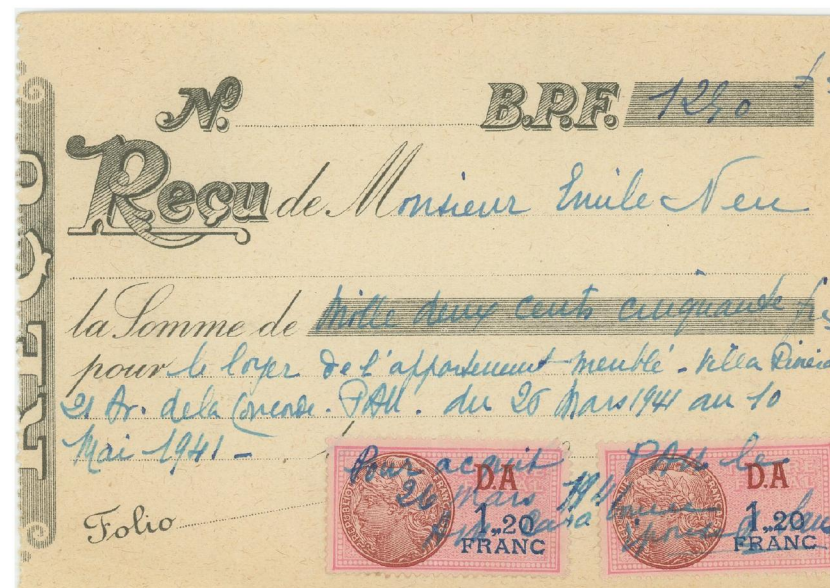 N.º B.P.F. 1250 f
REÇU
Reçu de Monsieur Emile Neu
la Somme de Mille deux cents cinquante frs
pour le loyer de l'appartement meublé - Villa
21 Av. de la Concorde. PAU. du 26 Mars 1941 au 10
Mai 1941 -
Pour acquit PAU le
26 Mars 1941
D.A D.A
1,20 1,20
FRANC FRANC
Folio